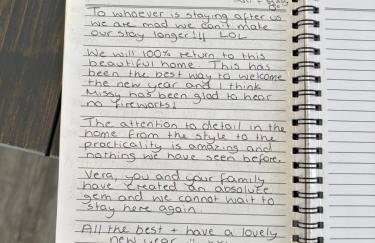 To whoever is staying after us
we are mad we can't make
our stay longer!!! LOL
We will 100% return to this
beautiful home. This has
been the best way to welcome
the new year and I think
Missy has been glad to hear
no fireworks!
The attention to detail in the
home from the style to the
practicality is amazing and
nothing we have seen before.
Vera, you and your family
have created an absolute
gem and we cannot wait to
stay here again.
All the best + have a lovely
new year